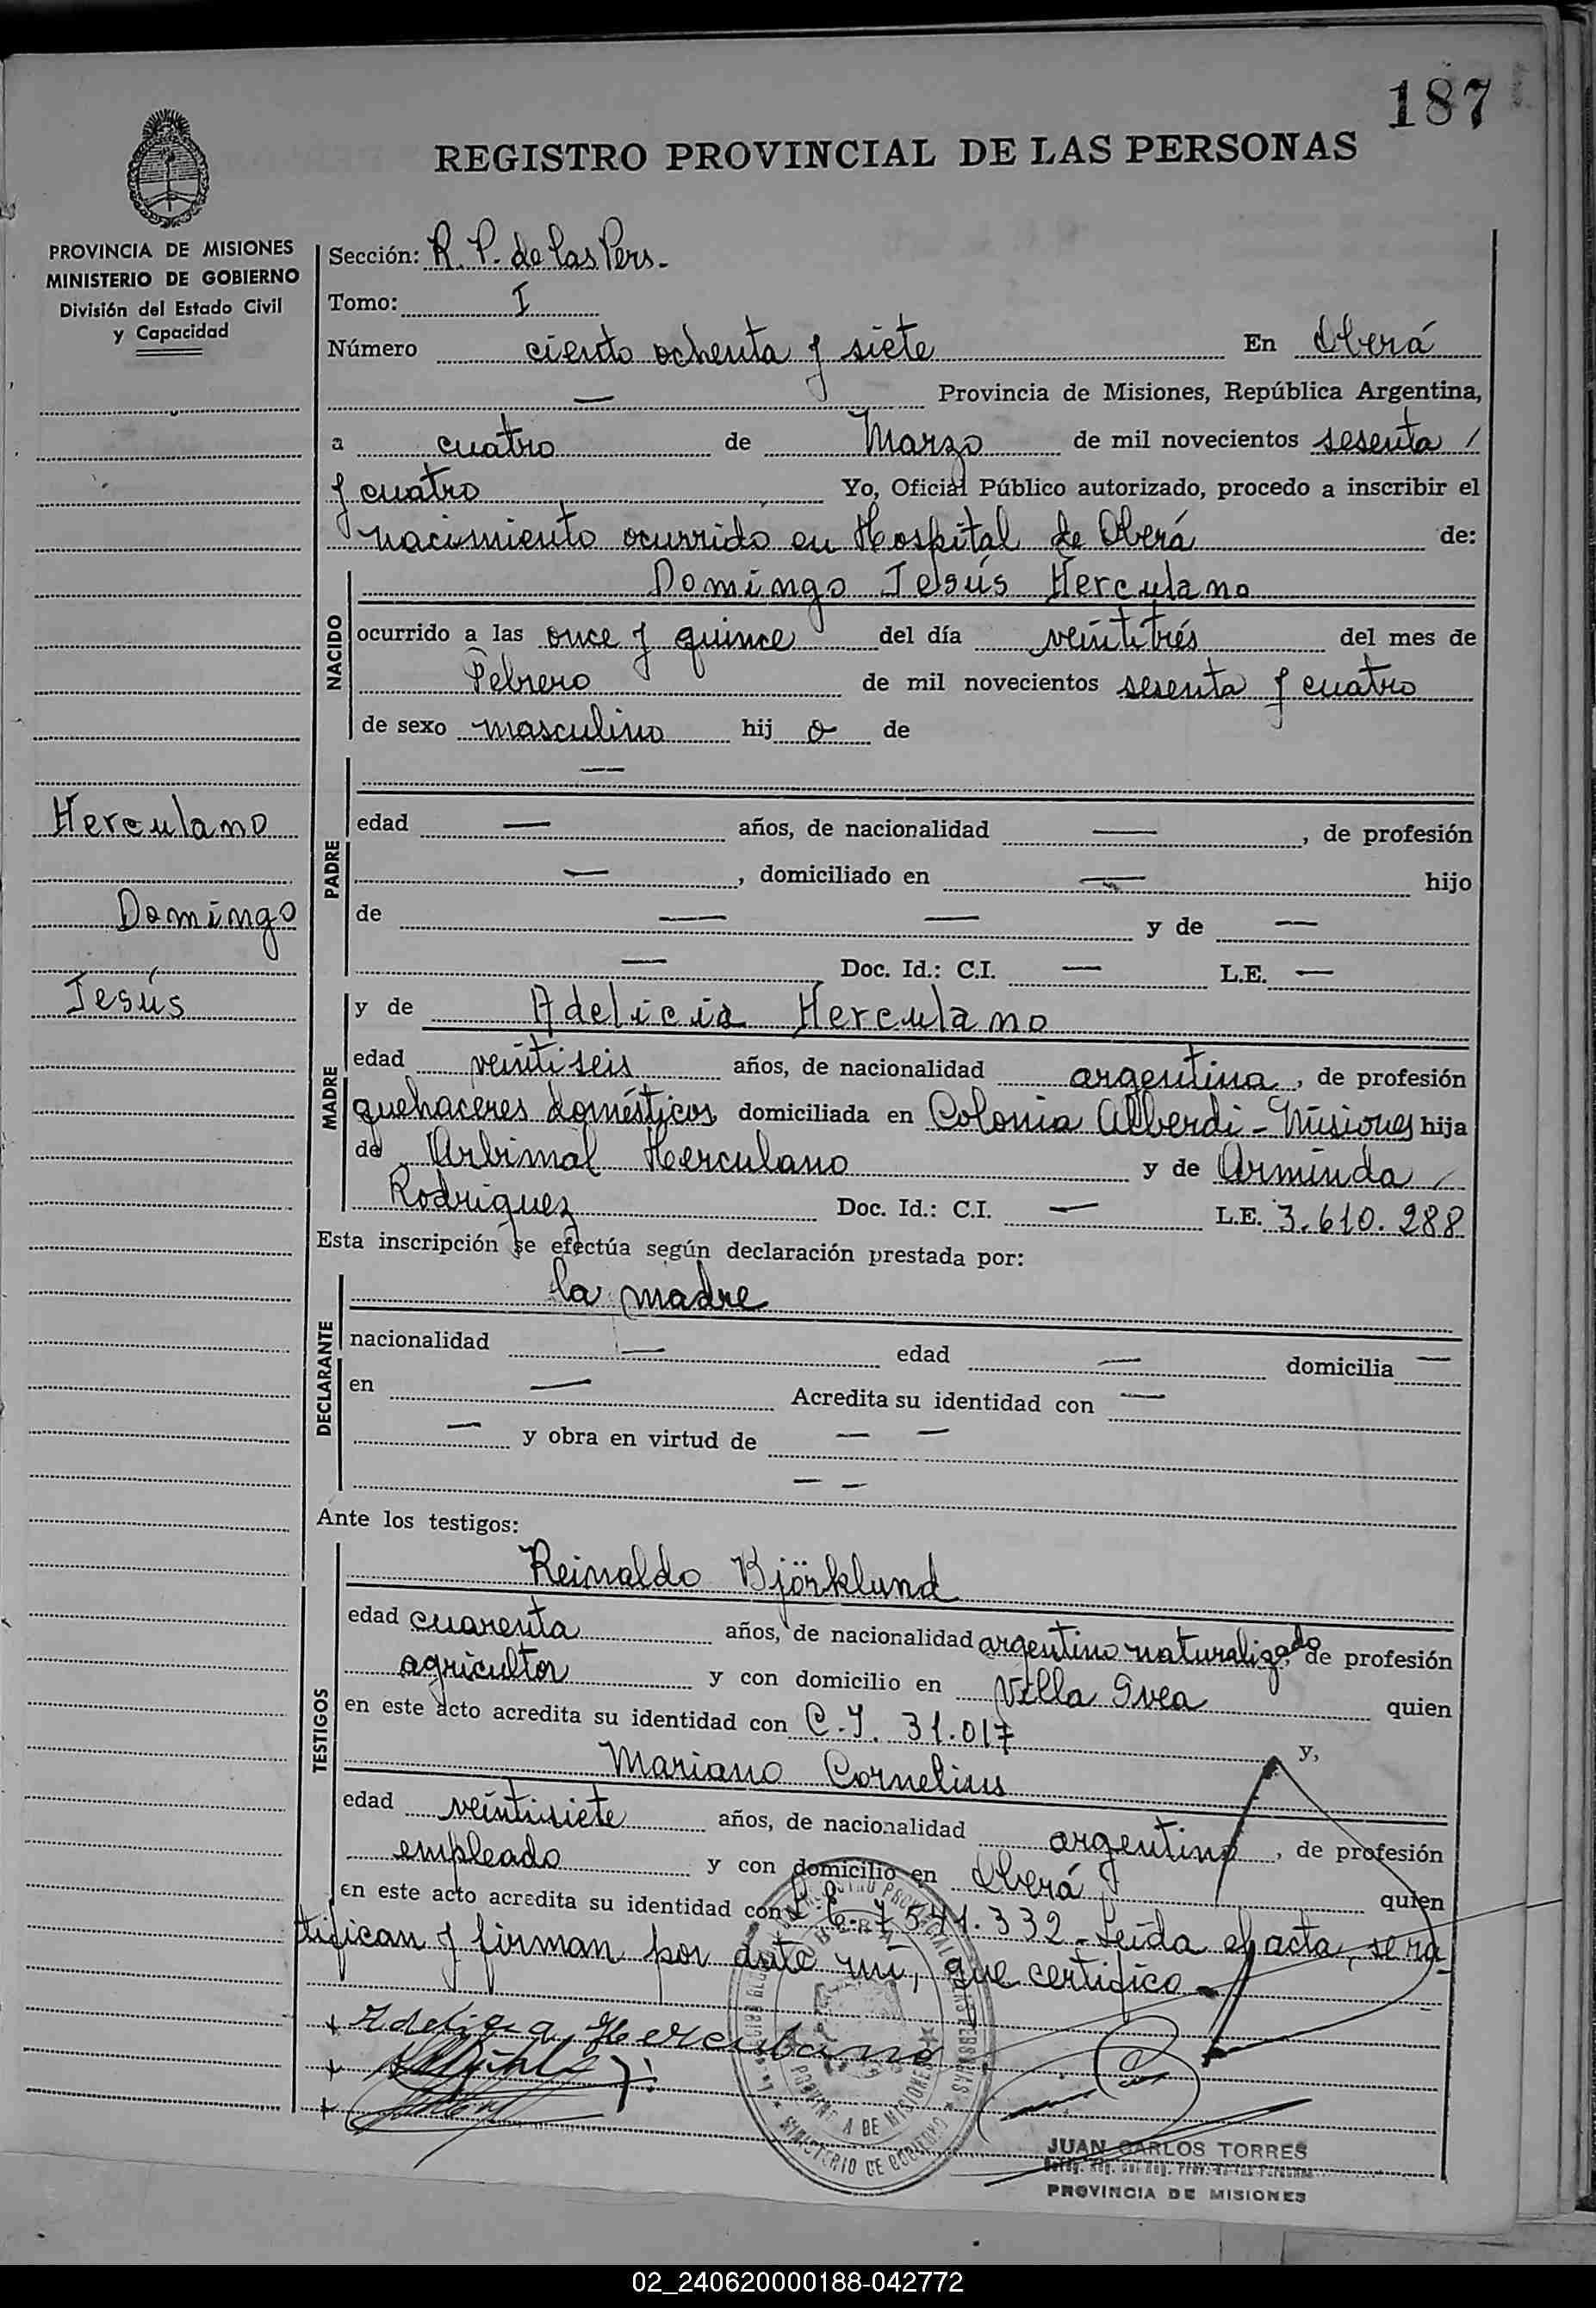 187
REGISTRO PROVINCIAL DE LAS PERSONAS
PROVINCIA DE MISIONES
MINISTERIO DE GOBIERNO
División del Estado Civil
y Capacidad
Sección: R. P. de las Pers.
Tomo: I
Número ciento ochenta y siete En Oberá
— Provincia de Misiones, República Argentina,
a cuatro de Marzo de mil novecientos sesenta /
y cuatro Yo, Oficial Público autorizado, procedo a inscribir el
nacimiento ocurrido en Hospital de Oberá de:
NACIDO
Domingo Jesús Herculano
ocurrido a las once y quince del día veintitrés del mes de
Febrero de mil novecientos sesenta y cuatro
de sexo masculino hij o de
Herculano
Domingo
Jesús
PADRE
—
edad — años, de nacionalidad —, de profesión
—, domiciliado en — hijo
de — — y de —
— Doc. Id.: C.I. — L.E. —
MADRE
y de Adelicia Herculano
edad veintiseis años, de nacionalidad argentina, de profesión
quehaceres domésticos domiciliada en Colonia Alberdi - Misiones hija
de Arbimal Herculano y de Arminda /
Rodriguez Doc. Id.: C.I. — L.E. 3.610.288
Esta inscripción se efectúa según declaración prestada por:
DECLARANTE
la madre
nacionalidad — edad — domicilia —
en — Acredita su identidad con —
— y obra en virtud de — —
— —
Ante los testigos:
TESTIGOS
Reinaldo Björklund
edad cuarenta años, de nacionalidad argentino naturalizado, de profesión
agricultor y con domicilio en Villa Svea quien
en este acto acredita su identidad con C.I. 31.017
y,
Mariano Cornelius
edad veintisiete años, de nacionalidad argentino, de profesión
empleado y con domicilio en Oberá quien
en este acto acredita su identidad con L.E. 7.541.332 - Leída el acta, se ra-
tifican y firman por ante mí, que certifico -
Adelicia Herculano
MINISTERIO DE GOBIERNO
PROVINCIA DE MISIONES
JUAN CARLOS TORRES
PROVINCIA DE MISIONES
02_240620000188-042772